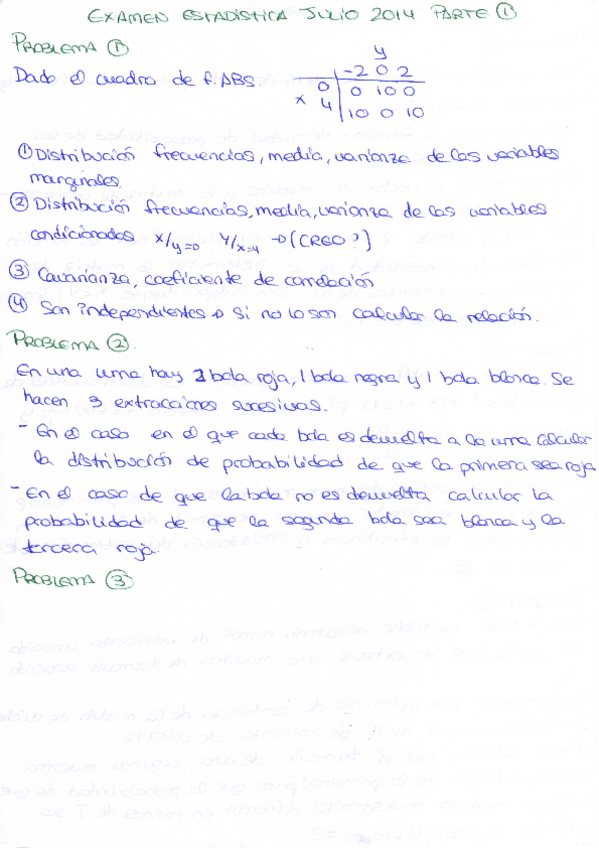 EXAMEN ESTADÍSTICA JULIO 2014 PARTE ①
PROBLEMA ①
Dado el cuadro de f. ABS.
y
-2 0 2
x 0 0 10 0
4 10 0 10
① Distribución frecuencias, media, varianza de las variables
marginales.
② Distribución frecuencias, media, varianza de las variables
condicionadas x/y=0 y/x=4 → (CREO?)
③ Covarianza, coeficiente de correlación
④ Son independientes → Si no lo son calcular la relación.
PROBLEMA ②.
En una urna hay 2 bola roja, 1 bola negra y 1 bola blanca. Se
hacen 3 extracciones sucesivas.
- En el caso en el que cada bola es devuelta a la urna calcular
la distribución de probabilidad de que la primera sea roja
- En el caso de que la bola no es devuelta calcular la
probabilidad de que la segunda bola sea blanca y la
tercera roja.
PROBLEMA ③